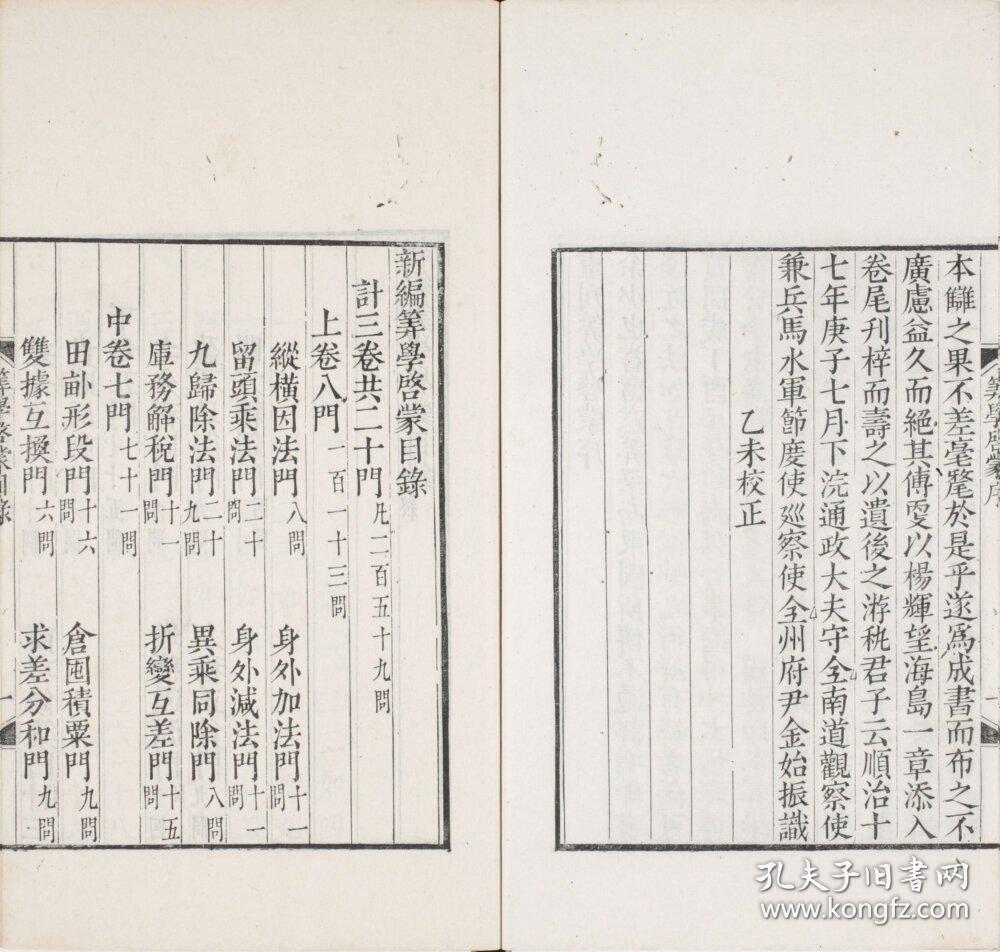 本讎之果不差毫氂於是乎遂爲成書而布之不
廣慮益久而絕其傳更以楊輝望海島一章添入
卷尾刋梓而壽之以遺後之游秇君子云順治十
七年庚子七月下浣通政大夫守全南道觀察使
兼兵馬水軍節度使廵察使全州府尹金始振識
乙未校正
算學啓蒙序
新編筭學啓蒙目錄
計三卷共二十門 凡二百五十九問
上卷八門 一百一十三問
縱橫因法門 八問 身外加法門 十一問
留頭乘法門 二十問 身外減法門 十一問
九歸除法門 二十九問 異乘同除門 八問
庫務解稅門 十一問 折變互差門 十五問
中卷七門 七十一問
田畝形段門 十六問 倉囤積粟門 九問
雙據互換門 六問 求差分和門 九問
算學啓蒙目錄 一
孔夫子旧书网
www.kongfz.com